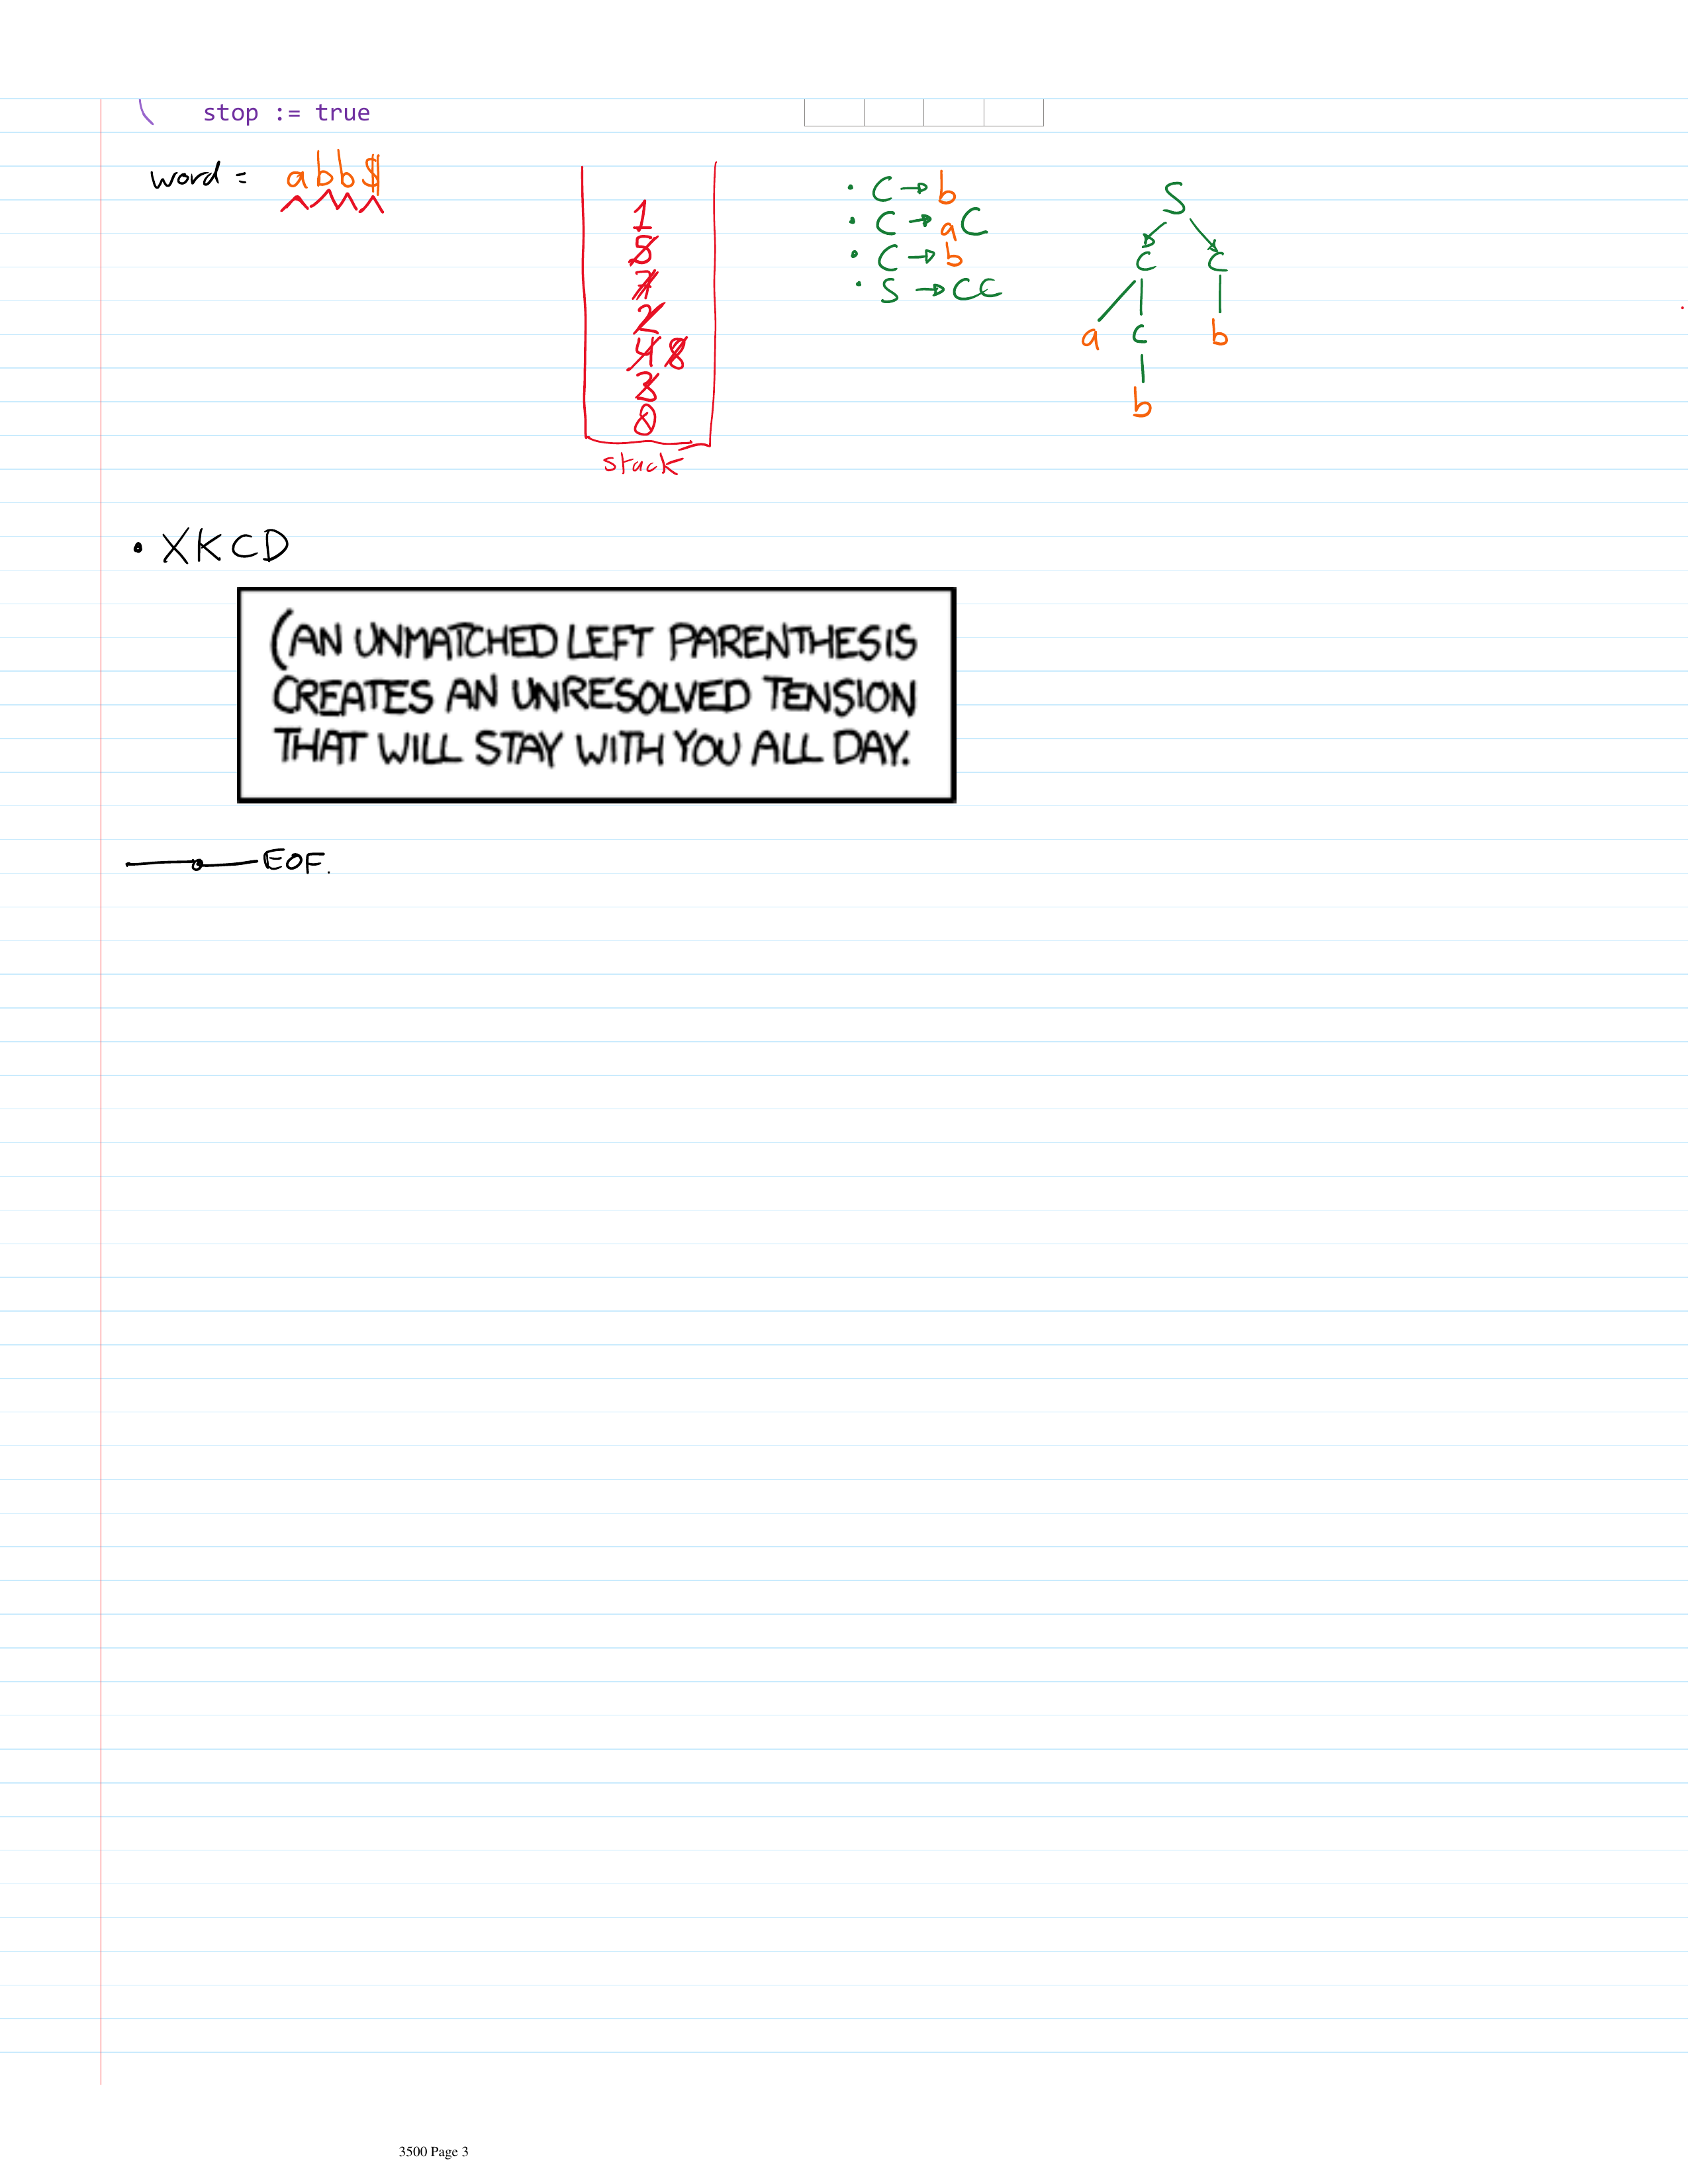 stop := true
word = abb$
1
5
7
2
4 8
3
0
stack
• C → b
• C → aC
• C → b
• S → CC
S
C C
a C b
b
• XKCD
(AN UNMATCHED LEFT PARENTHESIS
CREATES AN UNRESOLVED TENSION
THAT WILL STAY WITH YOU ALL DAY.
EOF.
3500 Page 3